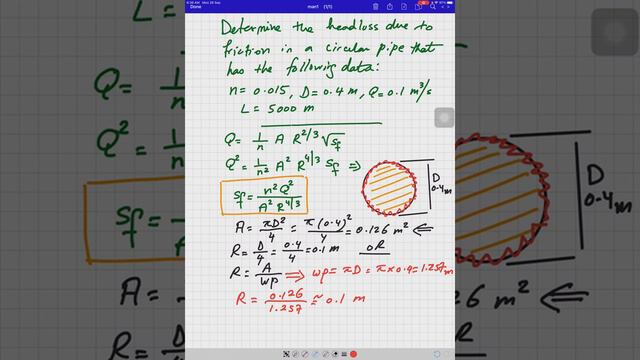 9:38 AM Mon 26 Sep
Done
man1 (1/1)
Determine the headloss due to
friction in a circular pipe that
has the following data:
n = 0.015, D = 0.4 m, Q = 0.1 m³/s
L = 5000 m
Q = 1/n A R^2/3 √sf
Q² = 1/n² A² R^4/3 sf ⇒
sf = n² Q² / A² R^4/3
D
0.4 m
A = πD²/4 = π(0.4)²/4 = 0.126 m² ⇐
R = D/4 = 0.4/4 = 0.1 m OR
R = A/wp ⇒ wp = πD = π × 0.4 = 1.257 m
R = 0.126/1.257 ≈ 0.1 m
L =
Q = 1/n
Q² = 1/n²
sf =
A = π
R = D
D
0.4 m
26 m² ⇐